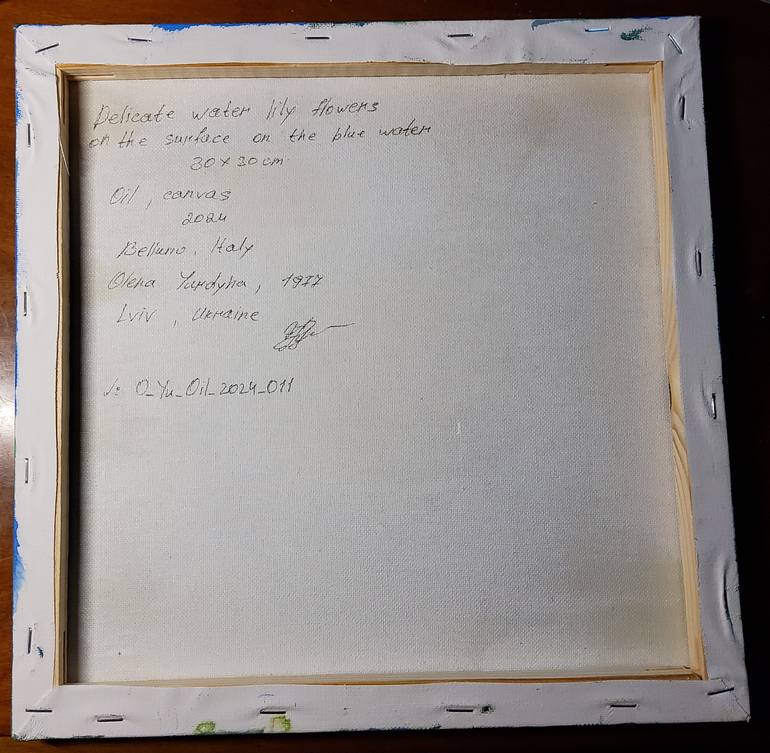 Delicate water lily flowers
on the surface on the blue water
30 x 30 cm
Oil, canvas
2024
Belluno, Italy
Olena Yurdyha, 1977
Lviv, Ukraine
√: O_Yu_Oil_2024_011